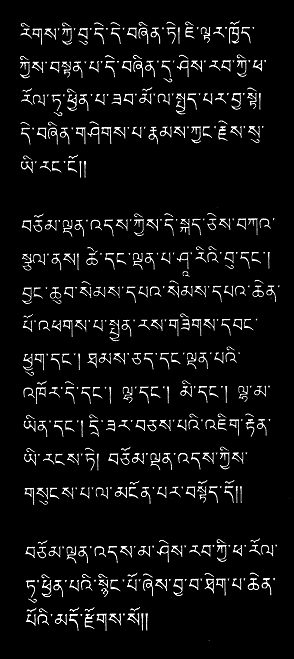 རིགས་ཀྱི་བུ་དེ་དེ་བཞིན་ཏེ། ཇི་ལྟར་ཁྱོད་
ཀྱིས་བསྟན་པ་དེ་བཞིན་དུ་ཤེས་རབ་ཀྱི་ཕ་
རོལ་ཏུ་ཕྱིན་པ་ཟབ་མོ་ལ་སྤྱད་པར་བྱ་སྟེ།
དེ་བཞིན་གཤེགས་པ་རྣམས་ཀྱང་རྗེས་སུ་
ཡི་རང་ངོ།།
བཅོམ་ལྡན་འདས་ཀྱིས་དེ་སྐད་ཅེས་བཀའ་
སྩལ་ནས། ཚེ་དང་ལྡན་པ་ཤཱ་རིའི་བུ་དང་།
བྱང་ཆུབ་སེམས་དཔའ་སེམས་དཔའ་ཆེན་
པོ་འཕགས་པ་སྤྱན་རས་གཟིགས་དབང་
ཕྱུག་དང་། ཐམས་ཅད་དང་ལྡན་པའི་
འཁོར་དེ་དང་། ལྷ་དང་། མི་དང་། ལྷ་མ་
ཡིན་དང་། དྲི་ཟར་བཅས་པའི་འཇིག་རྟེན་
ཡི་རངས་ཏེ། བཅོམ་ལྡན་འདས་ཀྱིས་
གསུངས་པ་ལ་མངོན་པར་བསྟོད་དོ།།
བཅོམ་ལྡན་འདས་མ་ཤེས་རབ་ཀྱི་ཕ་རོལ་
ཏུ་ཕྱིན་པའི་སྙིང་པོ་ཞེས་བྱ་བ་ཐེག་པ་ཆེན་
པོའི་མདོ་རྫོགས་སོ།།